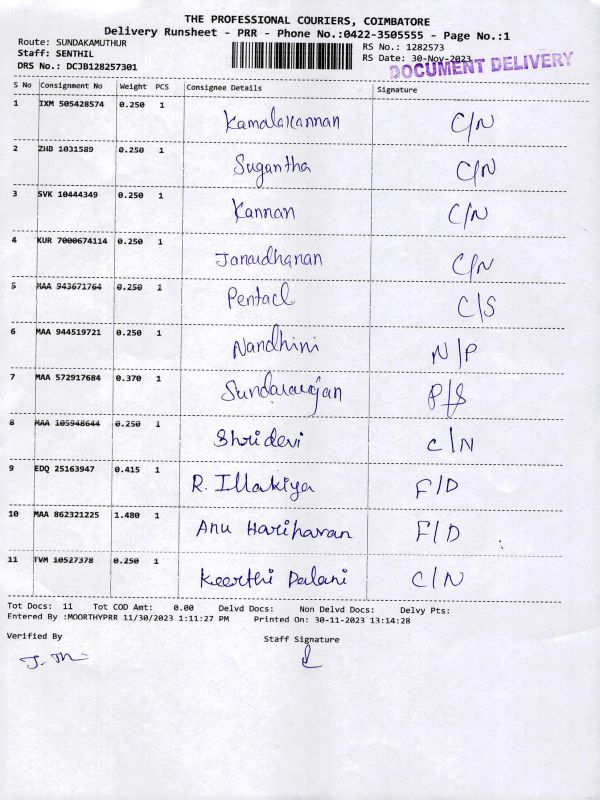 THE PROFESSIONAL COURIERS, COIMBATORE
Delivery Runsheet - PRR - Phone No.:0422-3505555 - Page No.:1
Route: SUNDAKAMUTHUR RS No.: 1282573
Staff: SENTHIL RS Date: 30-Nov-2023
DRS No.: DCJB128257301 DOCUMENT DELIVERY
S No Consignment No Weight PCS Consignee Details Signature
1 IXM 505428574 0.250 1 Kamalakannan C/N
2 ZHB 1031589 0.250 1 Sugantha C/N
3 SVK 10444349 0.250 1 Kannan C/N
4 KUR 7000674114 0.250 1 Janardhanan C/N
5 MAA 943671764 0.250 1 Pentacl C/S
6 MAA 944519721 0.250 1 Nandhini N/P
7 MAA 572917684 0.370 1 Sundararajan P/S
8 MAA 105948644 0.250 1 Shridevi C/N
9 EDQ 25163947 0.415 1 R. Illakiya F/D
10 MAA 862321225 1.480 1 Anu Hariharan F/D
11 TVM 10527378 0.250 1 Keerthi Palani C/N
Tot Docs: 11 Tot COD Amt: 0.00 Delvd Docs: Non Delvd Docs: Delvy Pts:
Entered By :MOORTHYPRR 11/30/2023 1:11:27 PM Printed On: 30-11-2023 13:14:28
Verified By Staff Signature